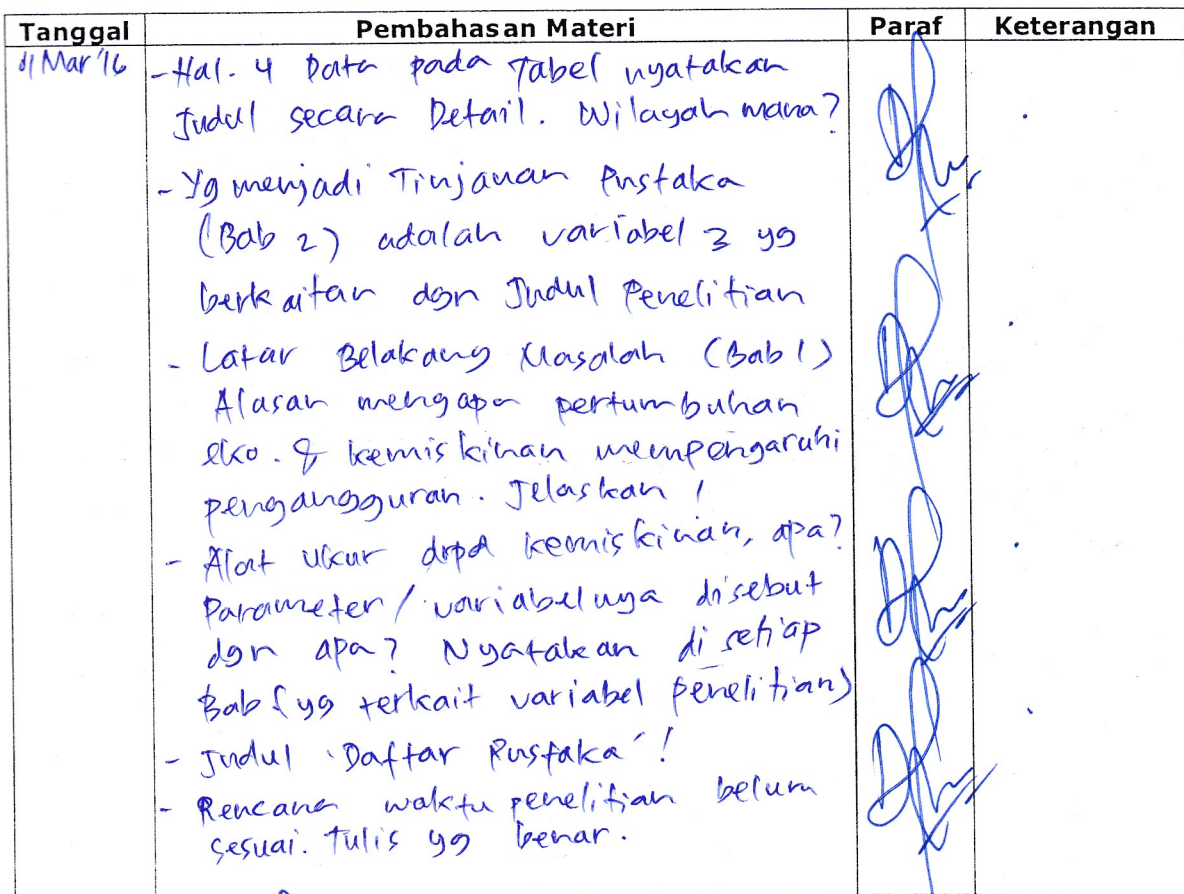 Tanggal Pembahasan Materi Paraf Keterangan
11 Mar '16 - Hal. 4 Data pada Tabel nyatakan
Judul secara Detail. Wilayah mana?
- Yg menjadi Tinjauan Pustaka
(Bab 2) adalah variabel 2 yg
berkaitan dgn Judul Penelitian
- Latar Belakang Masalah (Bab 1)
Alasan mengapa pertumbuhan
eko. & kemiskinan mempengaruhi
pengangguran. Jelaskan !
- Alat Ukur drpd kemiskinan, apa?
Parameter / variabelnya disebut
dgn apa? Nyatakan di setiap
Bab (yg terkait variabel penelitian)
- Judul 'Daftar Pustaka' !
- Rencana waktu penelitian belum
sesuai. Tulis yg benar.